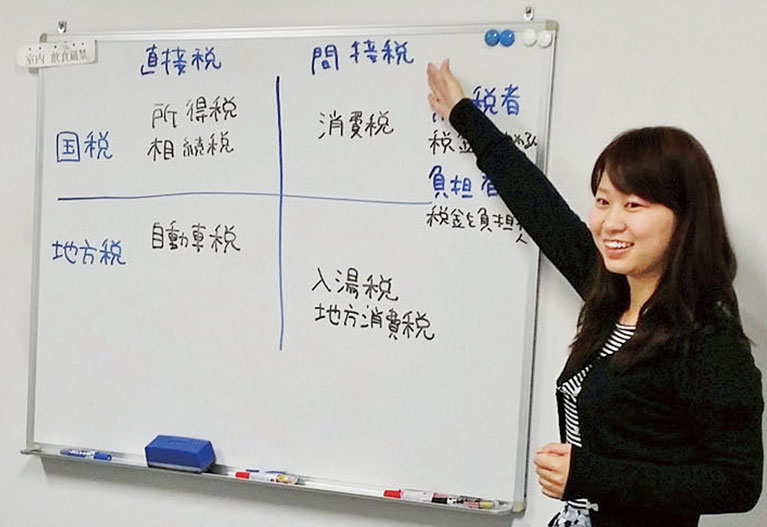 室内 飲食厳禁
直接税
間接税
国税
所得税
相続税
消費税
税者
税金
負担者
税金を負担 人
地方税
自動車税
入湯税
地方消費税